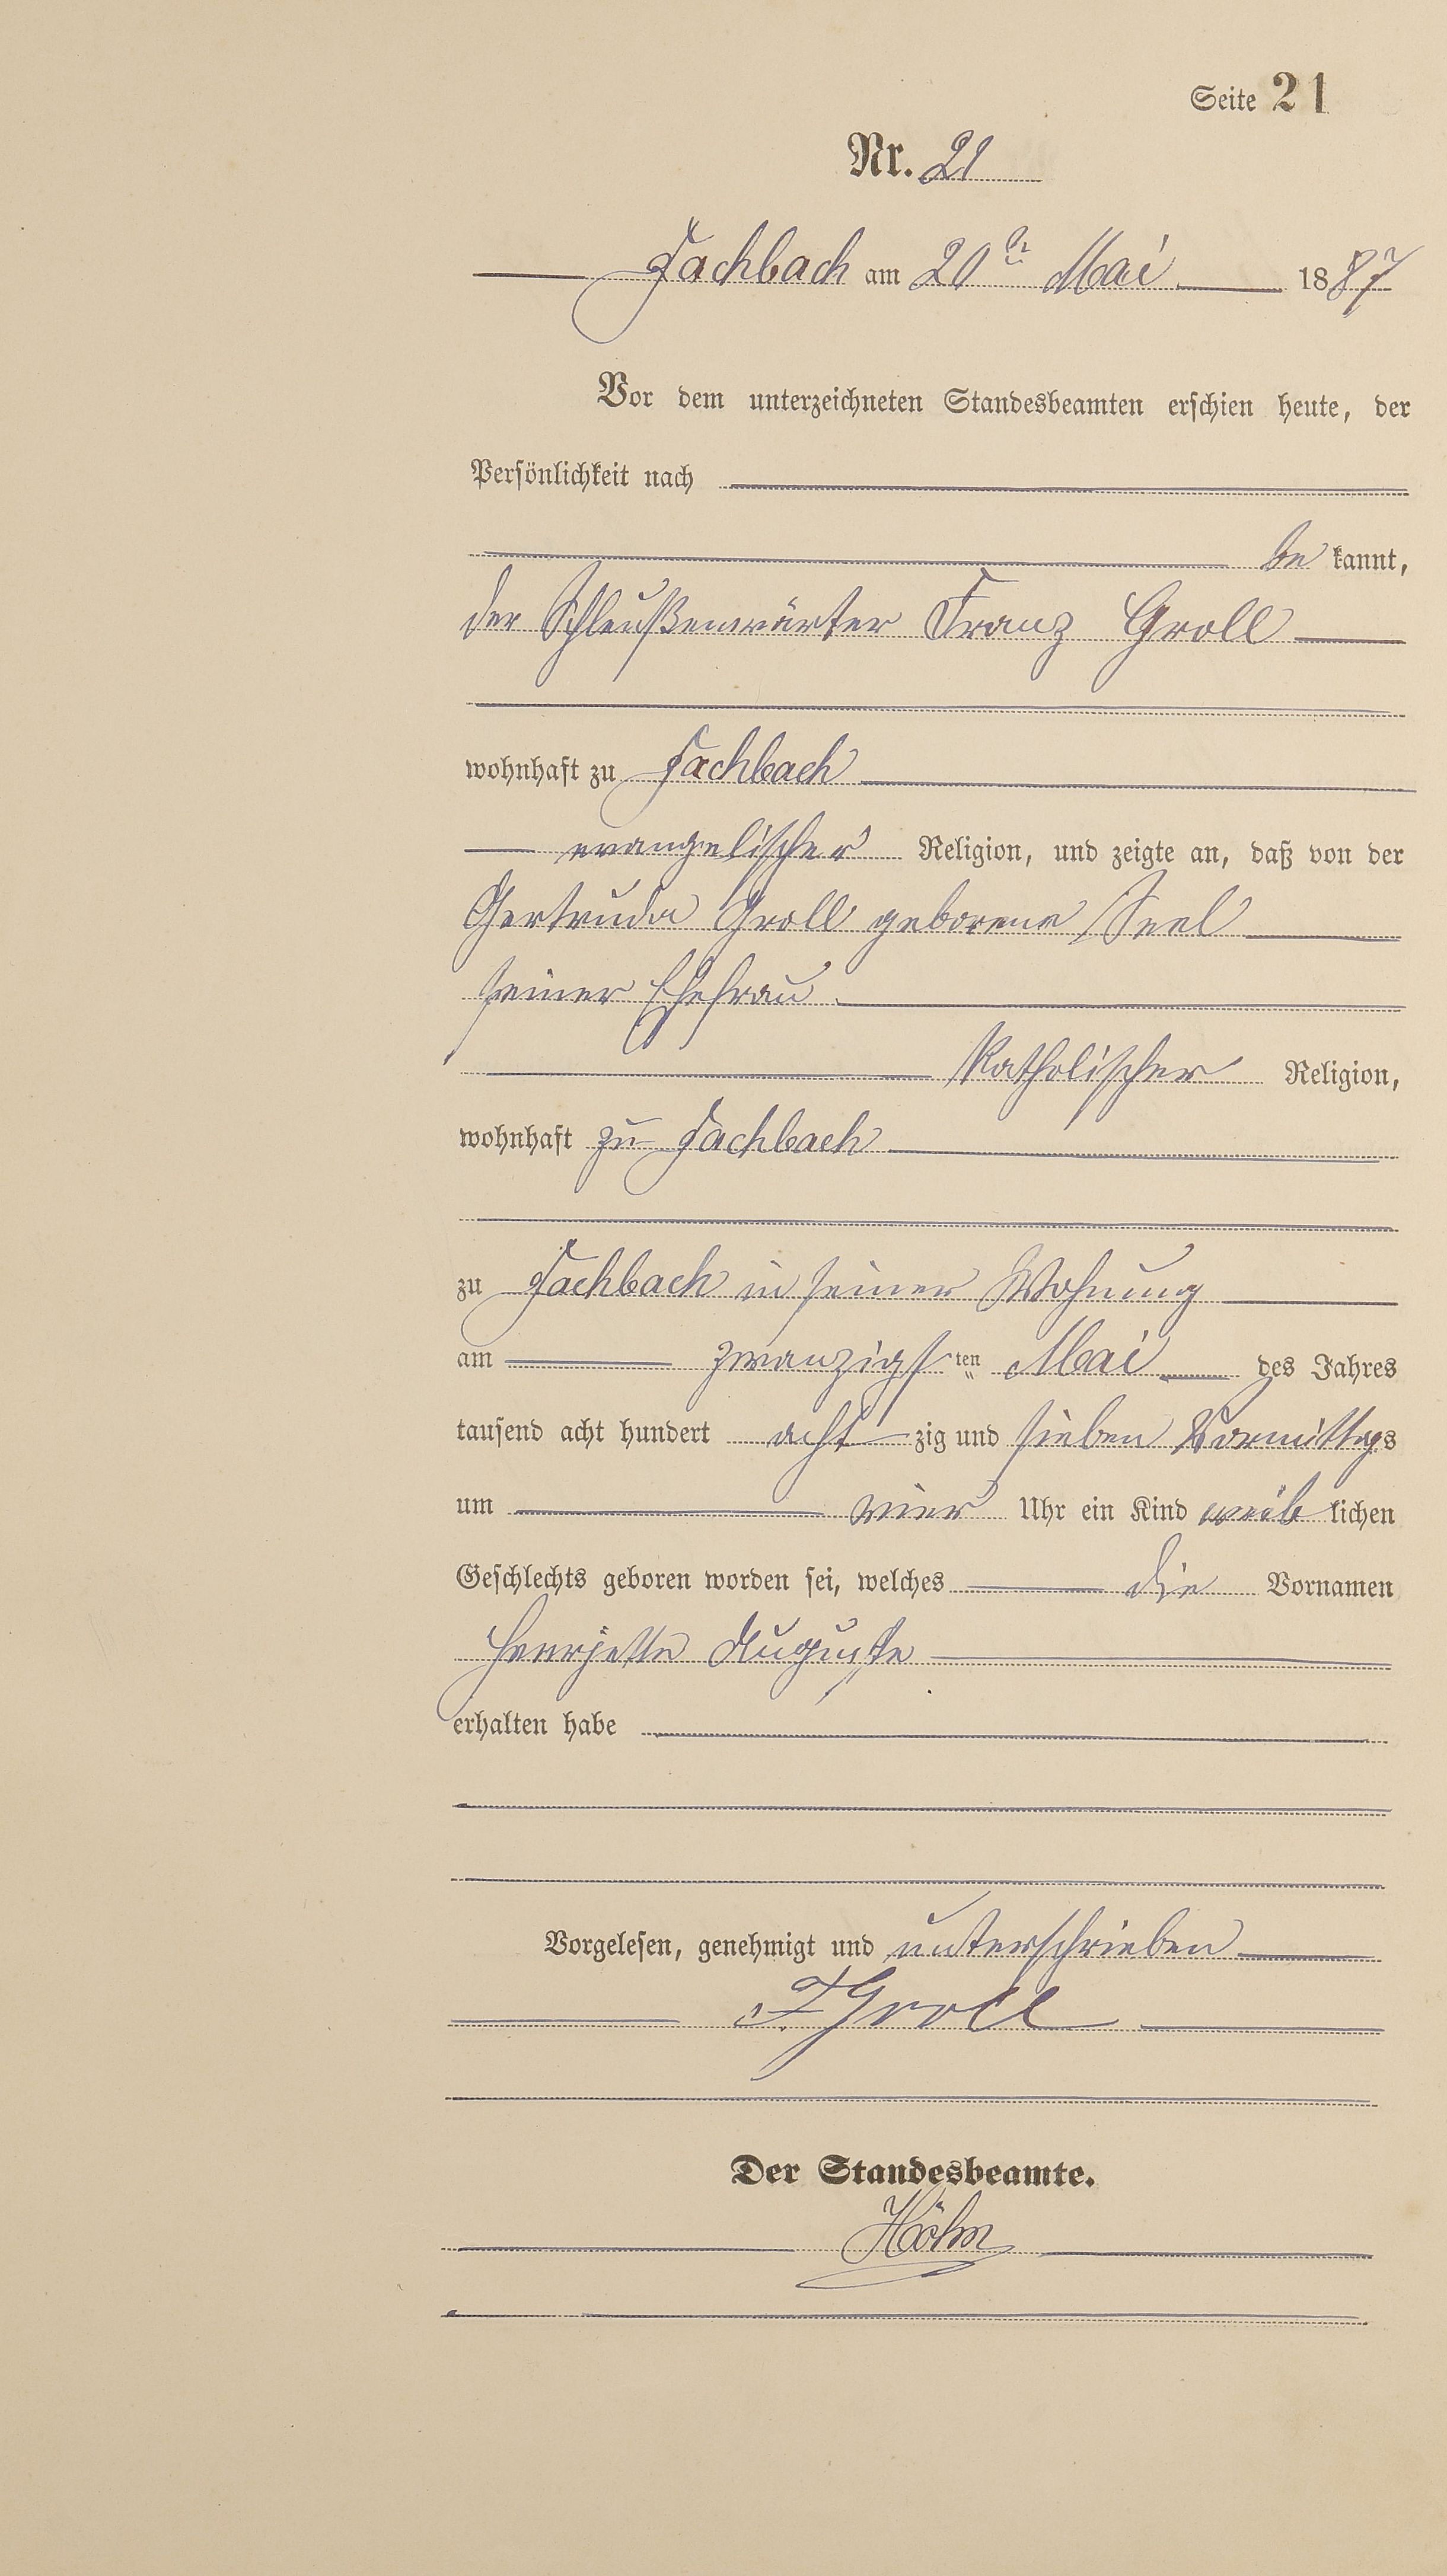 Seite 21
Nr. 21
Fachbach am 20ten Mai 1887
Vor dem unterzeichneten Standesbeamten erschien heute, der
Persönlichkeit nach
be kannt,
der Schleußenwärter Franz Groll
wohnhaft zu Fachbach
evangelischer Religion, und zeigte an, daß von der
Gertruda Groll geborene Seel
seiner Ehefrau
katholischer Religion,
wohnhaft zu Fachbach
zu Fachbach in seiner Wohnung
am zwanzigsten Mai des Jahres
tausend acht hundert achtzig und sieben Vormittags
um vier Uhr ein Kind weiblichen
Geschlechts geboren worden sei, welches die Vornamen
Henrjette Auguste
erhalten habe
Vorgelesen, genehmigt und unterschrieben
F Groll
Der Standesbeamte.
Höhn